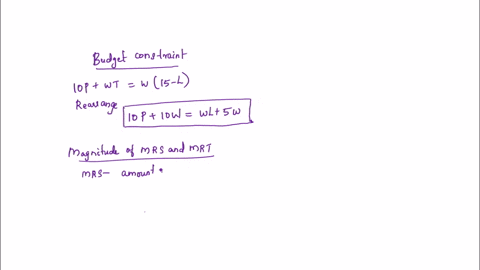 Budget constraint
10P + WT = W (15-L)
Rearrange
10P + 10W = WL + 5W
Magnitude of MRS and MRT
MRS - amount